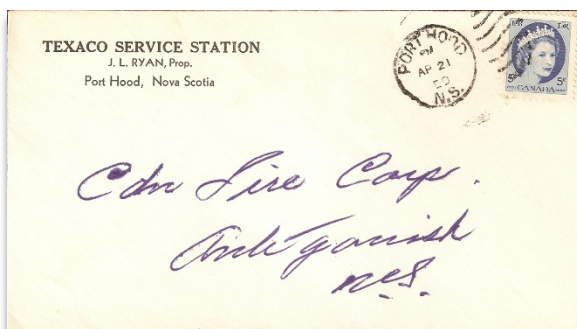 TEXACO SERVICE STATION
J. L. RYAN, Prop.
Port Hood, Nova Scotia
PORT HOOD
PM
AP 21
60
N.S.
5¢ 5¢
CANADA
Cdn Tire Corp.
Antigonish
N.S.